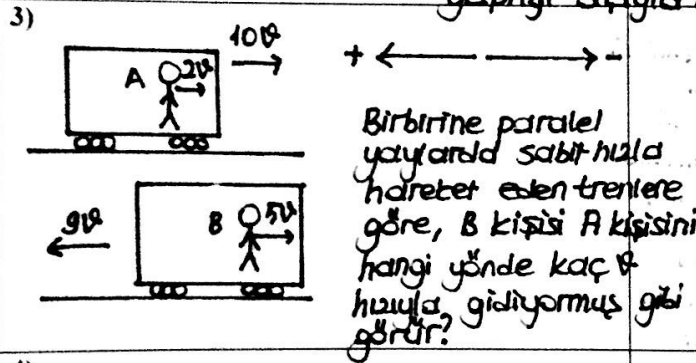 3)
10ϑ
A 2ϑ
+ -
Birbirine paralel
yaylarda sabit hızla
hareket eden trenlere
göre, B kişisi A kişisini
hangi yönde kaç ϑ
hızıyla gidiyormuş gibi
görür?
9ϑ
B 5ϑ